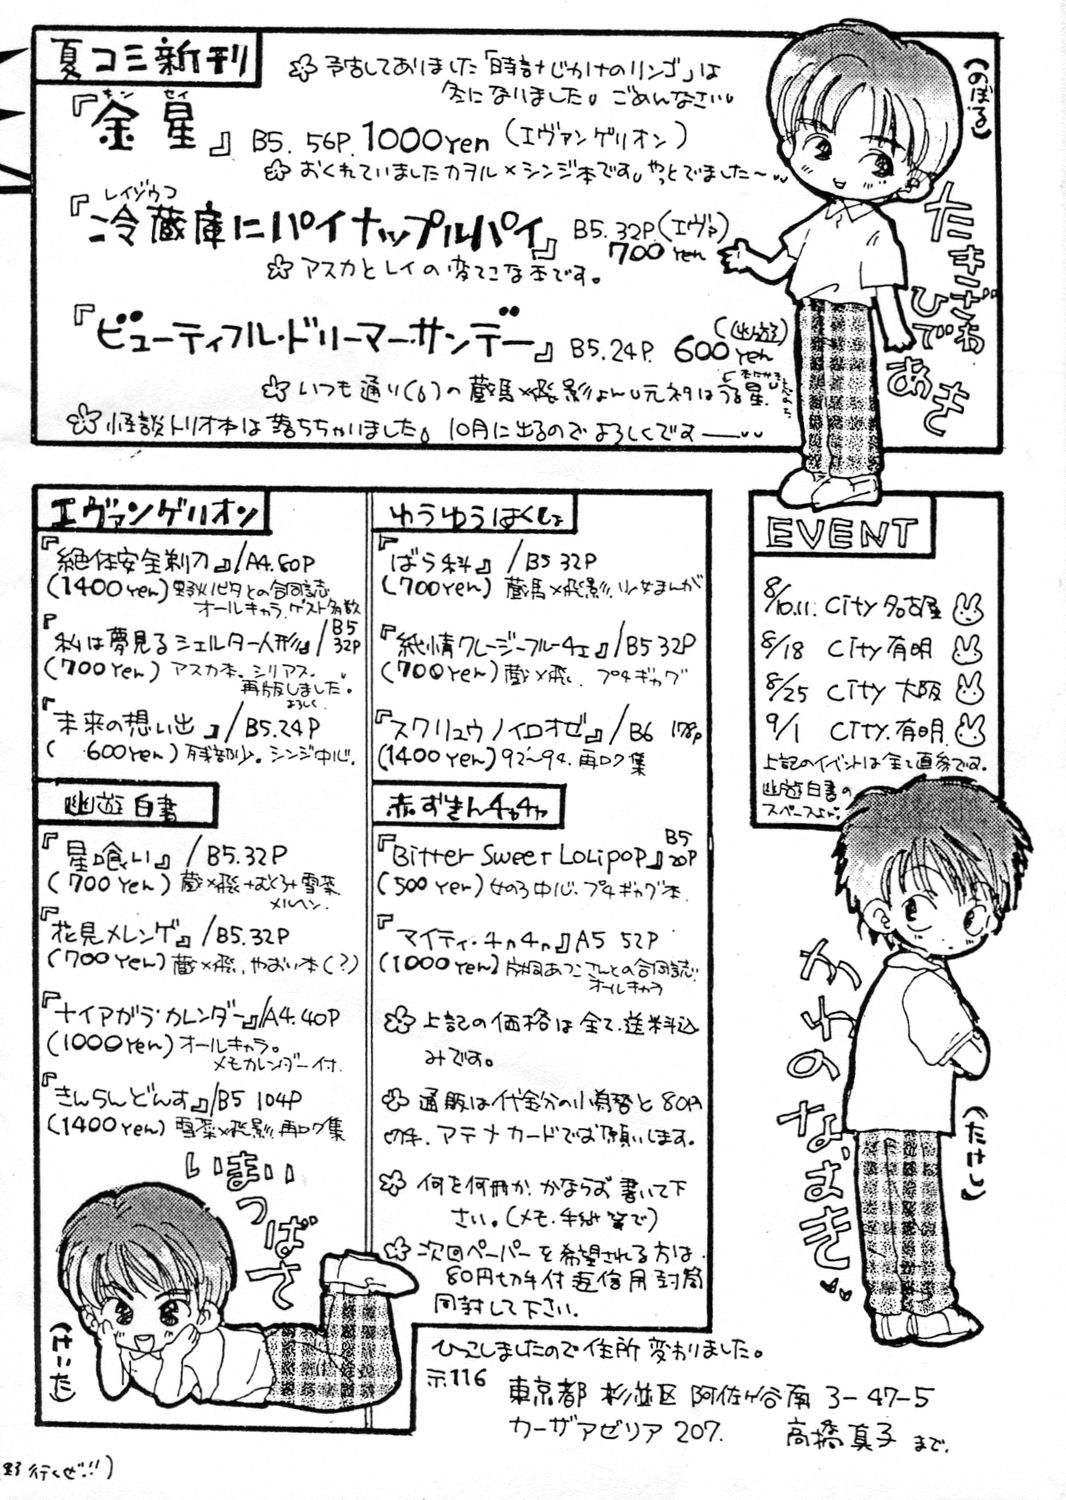 夏コミ新刊
✿予告してありました「時計じかけのリンゴ」は
冬になりました。ごめんなさい。
キン セイ
『金星』B5. 56P. 1000yen (エヴァンゲリオン)
✿おくれていましたカヲル×シンジ本です。やっとでました〜
レイゾウコ
『冷蔵庫にパイナップルパイ』B5.32P(エヴァ)
700yen
✿アスカとレイの変てこな本です。
『ビューティフル・ドリーマー・サンデー』B5.24P. 600yen
(幽遊)
✿いつも通り(?)の蔵馬×飛影よん 元ネタはうる星
✿怪談トリオ本は落ちちゃいました。10月に出るのでよろしくです——
(のぼる)
たきざわ
ひであき
エヴァンゲリオン
『絶体安全剃刀』/A4.60P
(1400yen)
との合同誌
オールキャラ.ゲスト多数
『私は夢見るシェルター人形』/B5 32P
(700yen)アスカ本。シリアス.
再版しました。
よろしく
『未来の想い出』/B5.24P
(600yen)残部少。シンジ中心.
幽遊白書
『星喰い』/B5.32P
(700yen)蔵×飛+おとうふ雪菜
メルヘン.
『花見メレンゲ』/B5.32P
(700yen)蔵×飛.やおい本(?)
『ナイアガラ・カレンダー』/A4.40P
(1000yen)オールキャラ。
メモカレンダー付.
『きんらんどんす』/B5 104P
(1400yen)雪菜×飛影.再ログ集
いまい
つばさ
(けいた)
ゆうゆうはくしょ
『ばら科』/B5 32P
(700yen)蔵馬×飛影.少女まんが
『純情クレージーフルーチェ』/B5 32P
(700yen)蔵×飛. プチギャグ
『スクリュウノイロオゼ』/B6 178P
(1400yen)92〜94.再ログ集
赤ずきんチャチャ
『Bitter Sweet Lolipop』B5 20P
(500yen)女の子中心.プチギャグ本.
『マイティ・チャチャ』A5 52P
(1000yen)片桐あつこさんとの合同誌.
オールキャラ
✿上記の価格は全て送料込
みです。
✿通販は代金分の小為替と80円
切手.アテナカードでお願いします。
✿何を何冊か.かならず書いて下
さい。(メモ.手紙等で)
✿次回ペーパーを希望される方は.
80円切手付返信用封筒
同封して下さい.
EVENT
8/10.11. City名古屋
8/18 City有明
8/25 City大阪
9/1 City.有明.
上記のイベントは全て直参です。
幽遊白書の
スペースよん.
かわの
なおき
(たけし)
ひっこしましたので住所変わりました。
〒116
東京都 杉並区 阿佐ヶ谷南 3-47-5
カーザアゼリア 207. 高橋真子まで.
行くぜ!!)